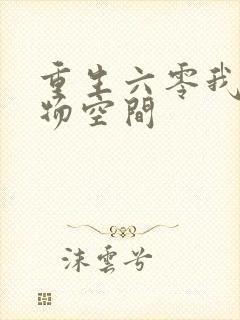 重生六零我
物空間
沫雲兮